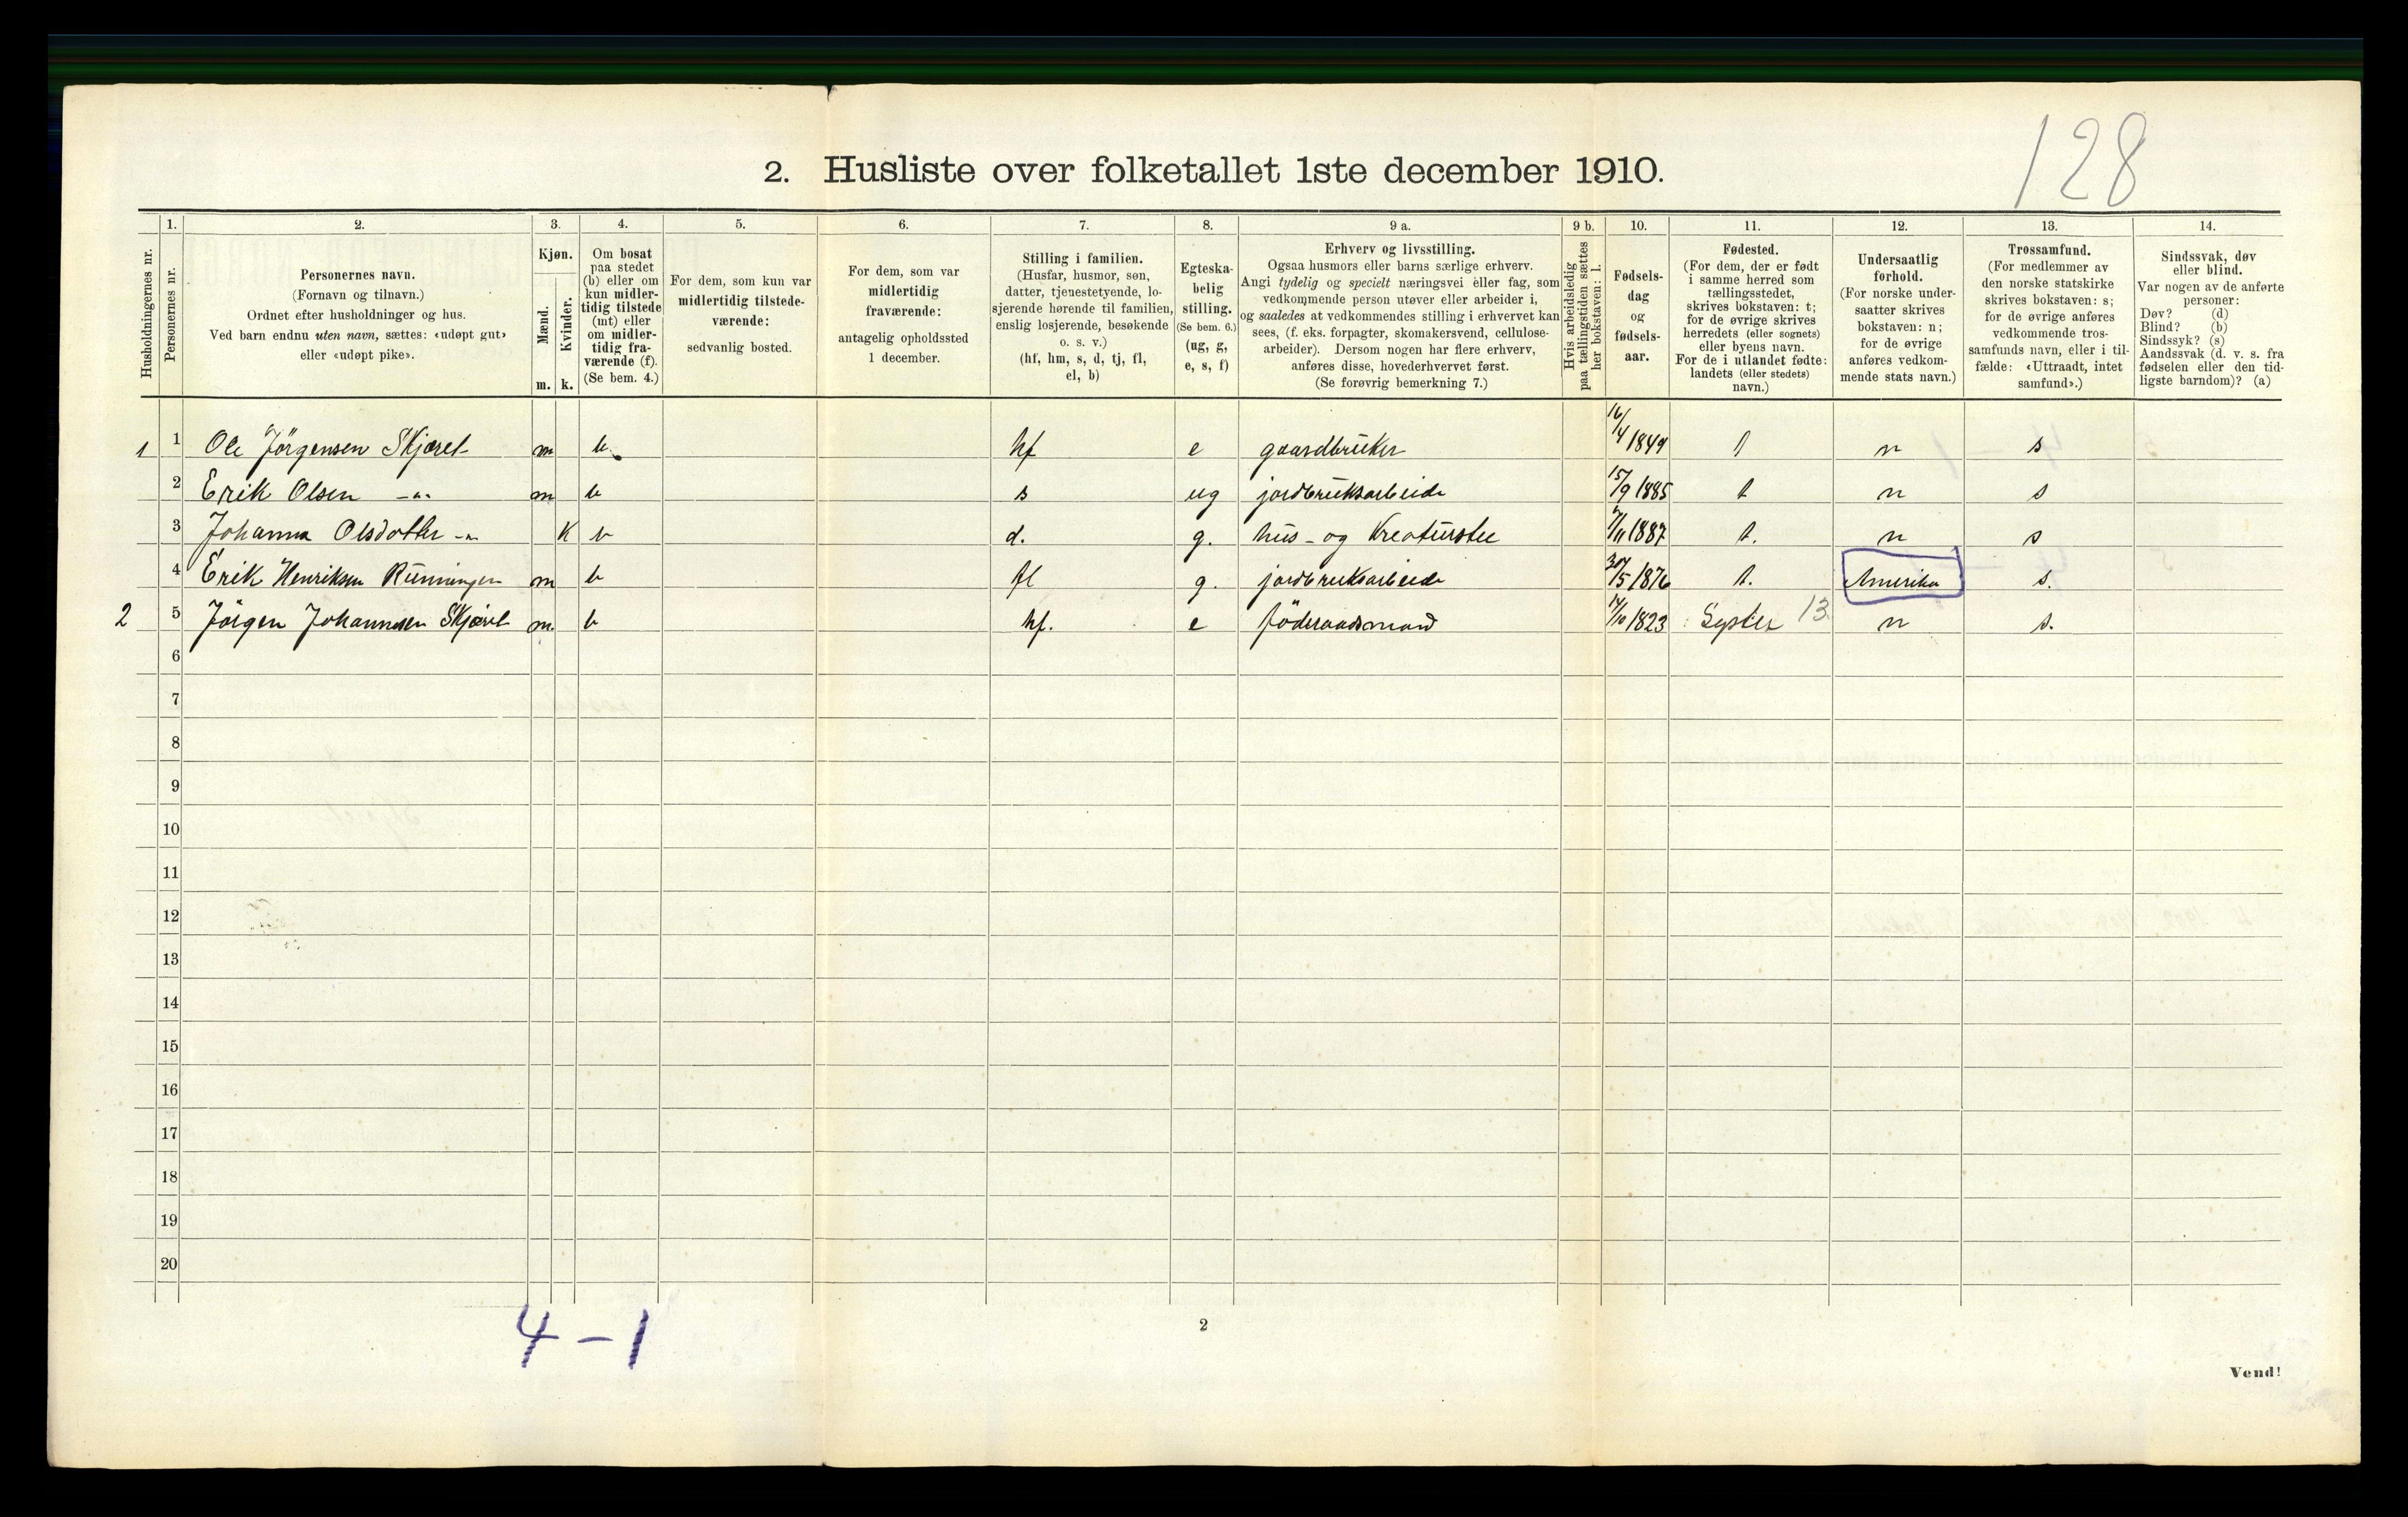 128
2. Husliste over folketallet 1ste december 1910.
Husholdningernes nr.
1.
Personernes nr.
2.
Personernes navn.
(Fornavn og tilnavn.)
Ordnet efter husholdninger og hus.
Ved barn endnu uten navn, sættes: «udøpt gut»
eller «udøpt pike».
3.
Kjøn.
Mænd.
Kvinder.
m. k.
4.
Om bosat
paa stedet
(b) eller om
kun midler-
tidig tilstede
(mt) eller
om midler-
tidig fra-
værende (f).
(Se bem. 4.)
5.
For dem, som kun var
midlertidig tilstede-
værende:
sedvanlig bosted.
6.
For dem, som var
midlertidig
fraværende:
antagelig opholdssted
1 december.
7.
Stilling i familien.
(Husfar, husmor, søn,
datter, tjenestetyende, lo-
sjerende hørende til familien,
enslig losjerende, besøkende
o. s. v.)
(hf, hm, s, d, tj, fl,
el, b)
8.
Egteska-
belig
stilling.
(Se bem. 6.)
(ug, g,
e, s, f)
9 a.
Erhverv og livsstilling.
Ogsaa husmors eller barns særlige erhverv.
Angi tydelig og specielt næringsvei eller fag, som
vedkommende person utøver eller arbeider i,
og saaledes at vedkommendes stilling i erhvervet kan
sees, (f. eks. forpagter, skomakersvend, cellulose-
arbeider). Dersom nogen har flere erhverv,
anføres disse, hovederhvervet først.
(Se forøvrig bemerkning 7.)
9 b.
Hvis arbeidsledig
paa tællingstiden sættes
her bokstaven: l.
10.
Fødsels-
dag
og
fødsels-
aar.
11.
Fødested.
(For dem, der er født
i samme herred som
tællingsstedet,
skrives bokstaven: t;
for de øvrige skrives
herredets (eller sognets)
eller byens navn.
For de i utlandet fødte:
landets (eller stedets)
navn.)
12.
Undersaatlig
forhold.
(For norske under-
saatter skrives
bokstaven: n;
for de øvrige
anføres vedkom-
mende stats navn.)
13.
Trossamfund.
(For medlemmer av
den norske statskirke
skrives bokstaven: s;
for de øvrige anføres
vedkommende tros-
samfunds navn, eller i til-
fælde: «Uttraadt, intet
samfund».)
14.
Sindssvak, døv
eller blind.
Var nogen av de anførte
personer:
Døv? (d)
Blind? (b)
Sindssyk? (s)
Aandssvak (d. v. s. fra
fødselen eller den tid-
ligste barndom)? (a)
1 1 Ole Jörgensen Skjæret m b hf e gaardbruker 16/4 1849 t n s
2 Erik Olsen -"- m b s ug jordbruksarbeide 15/9 1885 t n s
3 Johanna Olsdotter -"- K b d. g. hus- og Kreaturstee 7/11 1887 t. n s
4 Erik Henriksen Rünningen m b fl g. jordbruksarbeide 30/5 1876 t. Amerika s.
2 5 Jörgen Johannesen Skjæret m. b hf. e föderaadsmand 14/10 1823 13 n s.
6
7
8
9
10
11
12
13
14
15
16
17
18
19
20
4 - 1
2
Vend!